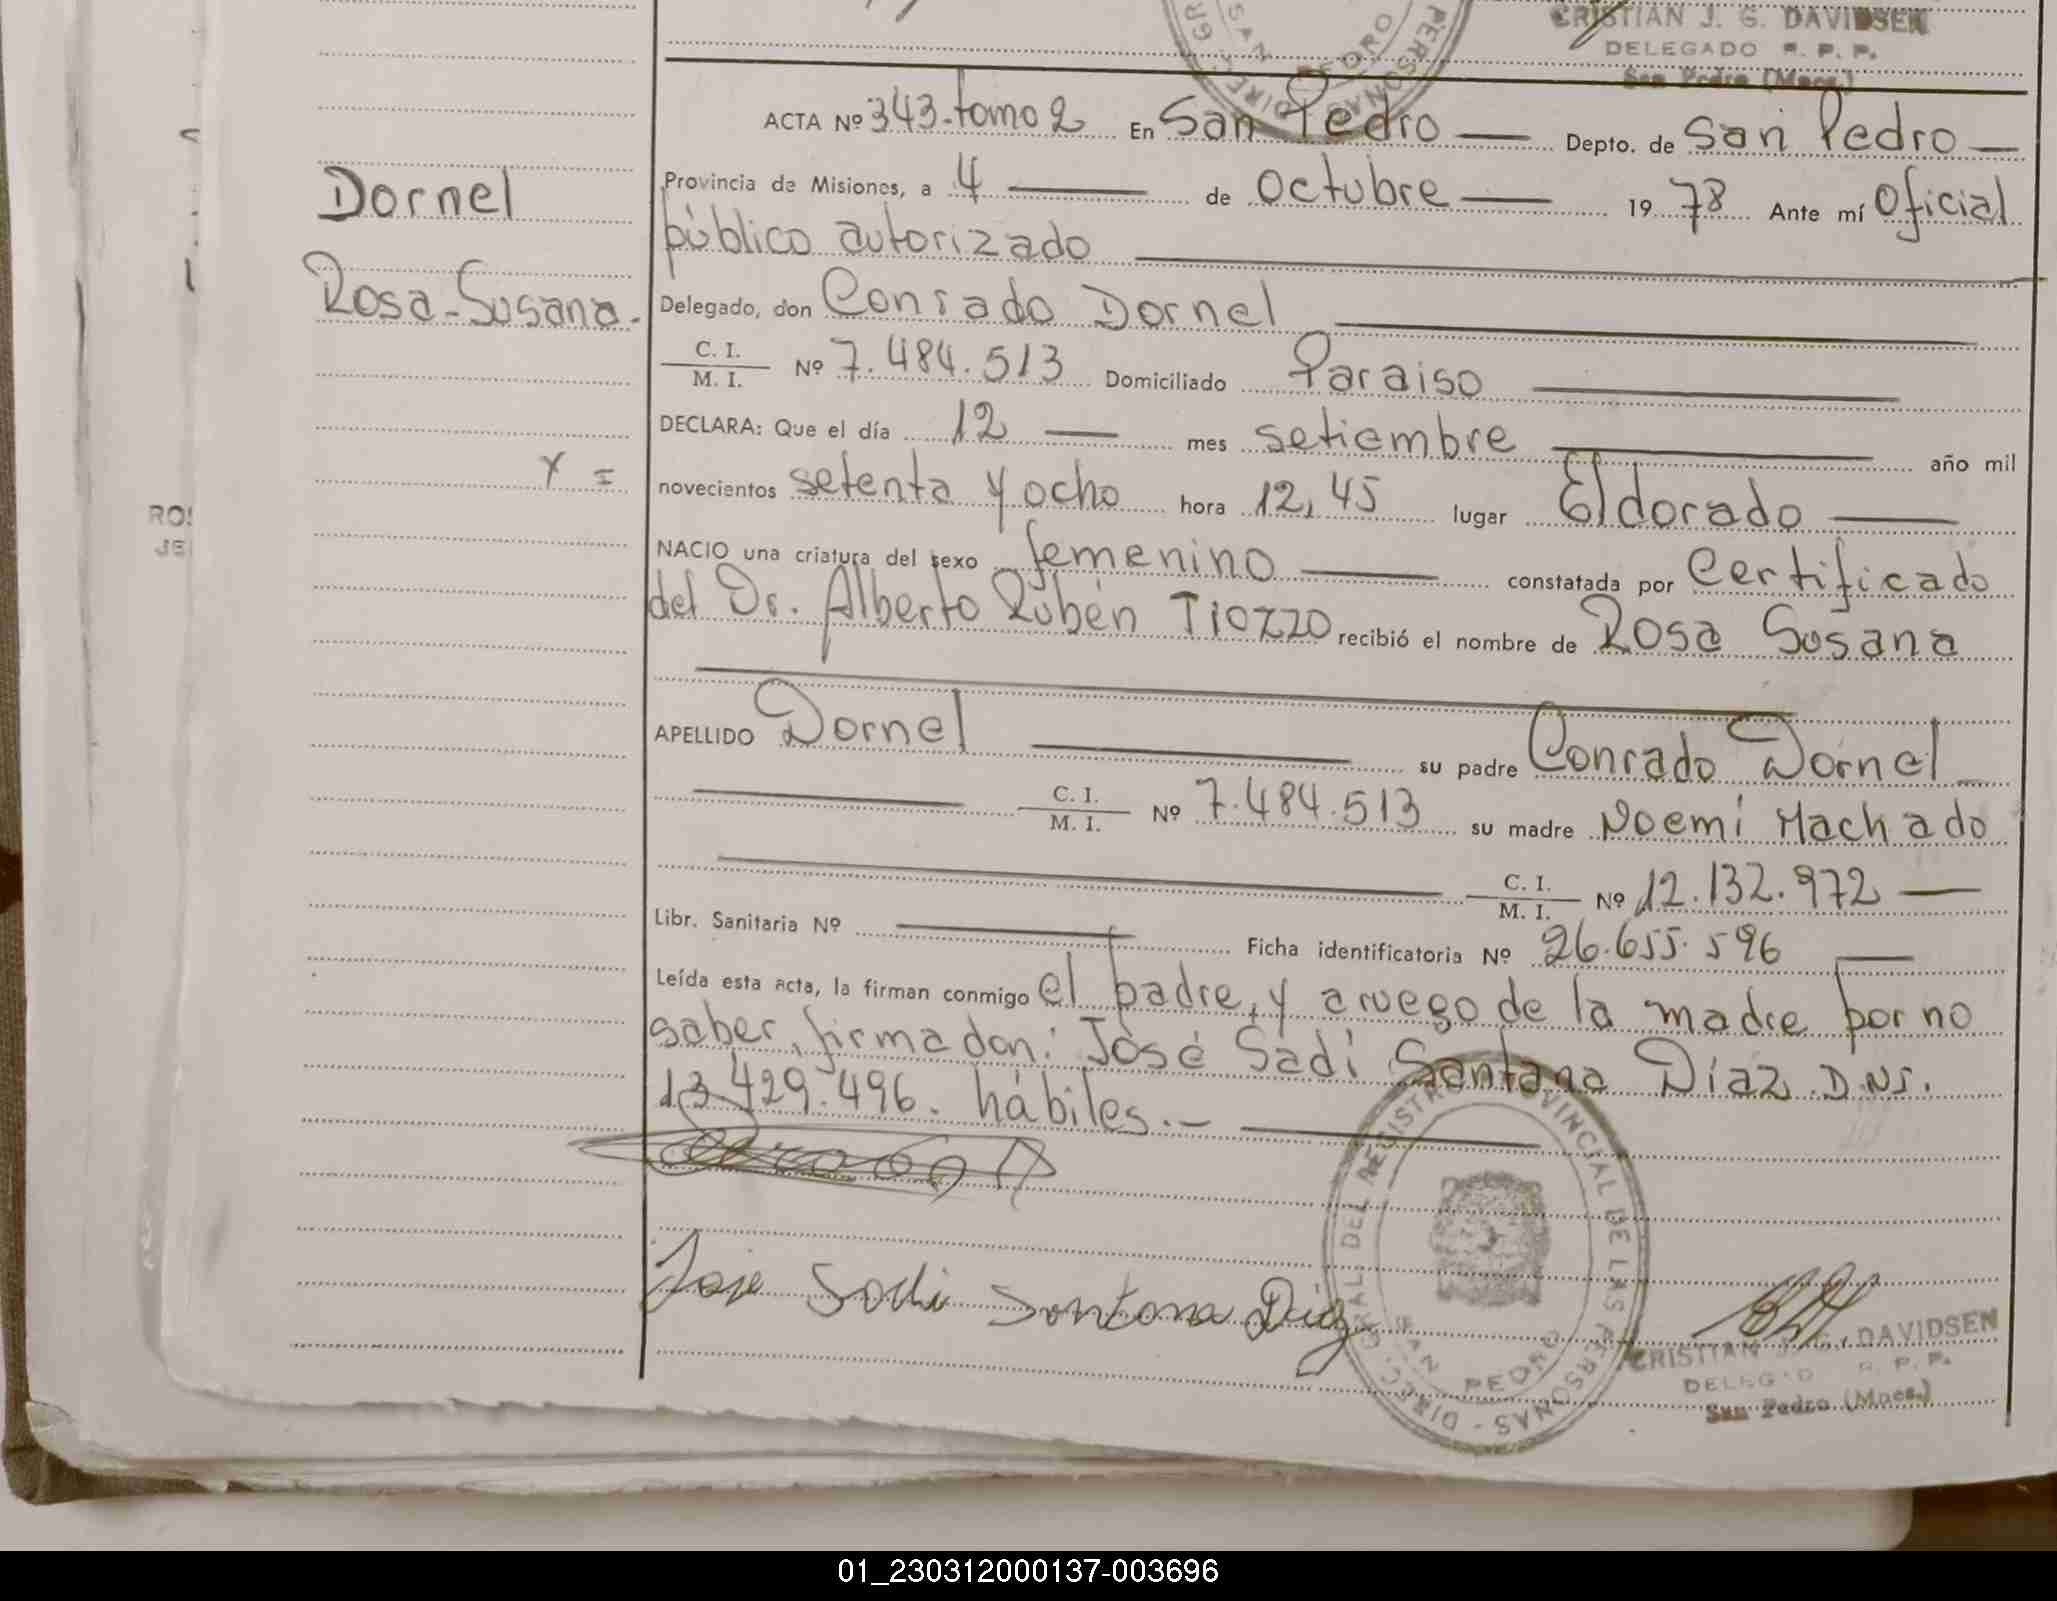 CRISTIAN J. G. DAVIDSEN
DELEGADO R. P. P.
San Pedro (Mnes.)
SAN PEDRO
ACTA Nº 343-tomo 2 En San Pedro Depto. de San Pedro
Dornel
Provincia de Misiones, a 4 de Octubre 1978 Ante mí Oficial
público autorizado
Rosa-Susana.
Delegado, don Conrado Dornel
C. I. / M. I. Nº 7.484.513 Domiciliado Paraiso
DECLARA: Que el día 12 mes setiembre año mil
novecientos setenta y ocho hora 12,45 lugar Eldorado
NACIO una criatura del sexo femenino constatada por Certificado
del Dr. Alberto Rubén Tiozzo recibió el nombre de Rosa Susana
APELLIDO Dornel su padre Conrado Dornel
C. I. / M. I. Nº 7.484.513 su madre Noemí Machado
C. I. / M. I. Nº 12.132.972
Libr. Sanitaria Nº Ficha identificatoria Nº 26.655.596
Leída esta acta, la firman conmigo el padre, y a ruego de la madre por no
saber firma don: José Sadi Santana Díaz D.N.I.
13.429.496. hábiles.-
José Sadi Santana Diaz
DIREC. GRAL. DEL REGISTRO PROVINCIAL DE LAS PERSONAS
SAN PEDRO
CRISTIAN J. G. DAVIDSEN
DELEGADO R. P. P.
San Pedro (Mnes.)
01_230312000137-003696